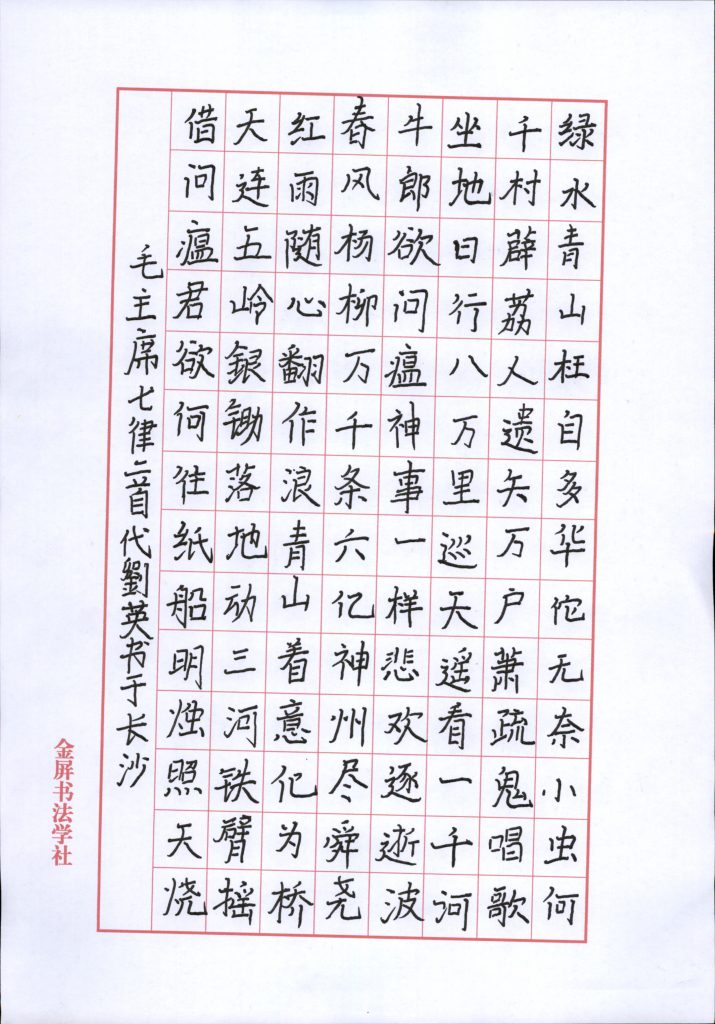 绿水青山枉自多华佗无奈小虫何
千村薜荔人遗矢万户萧疏鬼唱歌
坐地日行八万里巡天遥看一千河
牛郎欲问瘟神事一样悲欢逐逝波
春风杨柳万千条六亿神州尽舜尧
红雨随心翻作浪青山着意化为桥
天连五岭銀锄落地动三河铁臂摇
借问瘟君欲何往纸船明烛照天烧
毛主席七律二首代劉英书于长沙
金屏书法学社